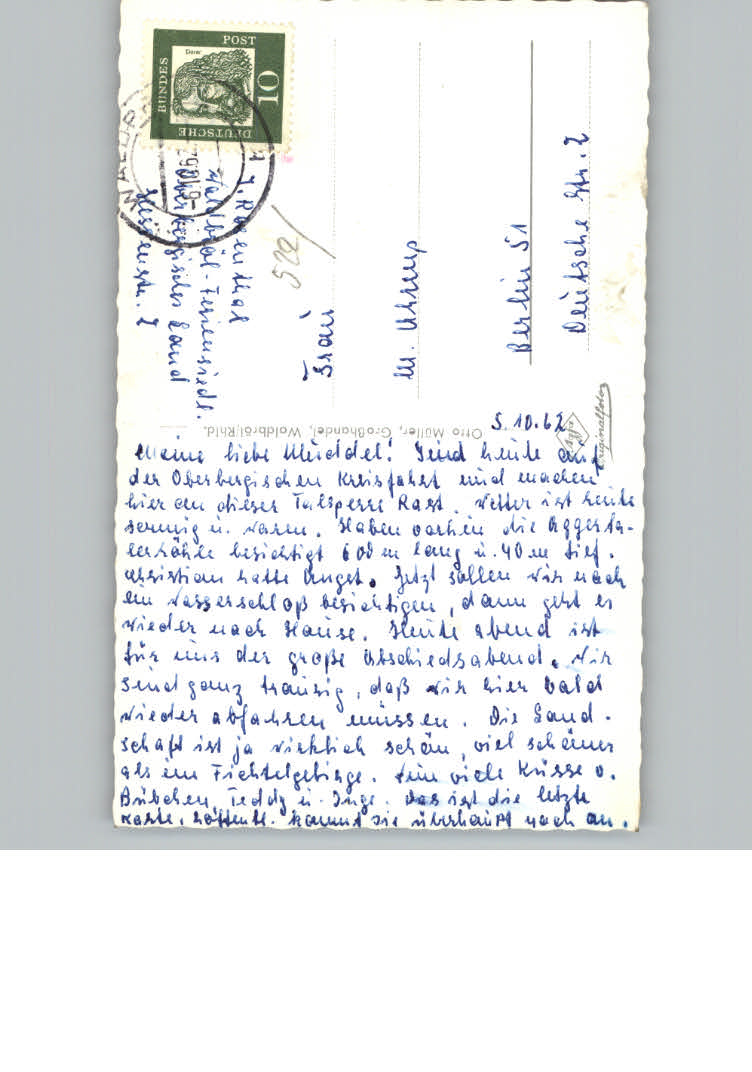 5.10.62
Meine liebe Muddel! Sind heute auf
der Oberbergischen Kreisfahrt und machen
hier an dieser Talsperre Rast. Wetter ist heute
sonnig u. warm. Haben vorhin die Aggerta-
lerhöhle besichtigt 600 m lang u. 40 m tief.
Christian hatte Angst. Jetzt sollen wir noch
ein Wasserschloß besichtigen, dann geht es
wieder nach Hause. Heute abend ist
für uns der große Abschiedsabend. Wir
sind ganz traurig, daß wir hier bald
wieder abfahren müssen. Die Land-
schaft ist ja wirklich schön, viel schöner
als im Fichtelgebirge. Nun viele Küsse v.
Bübchen, Teddy u. Inge. Das ist die letzte
Karte, hoffentl. kommt sie überhaupt noch an.
Frau
M.
Berlin 51
Deutsche Str. 2
J. Rosenthal
Waldbröl-Feriensiedl.
Oberbergisches Land
Otto Müller, Großhandel, Waldbröl/Rhld.
Agfa
Originalfoto
DEUTSCHE
BUNDES
POST
10
Dürer